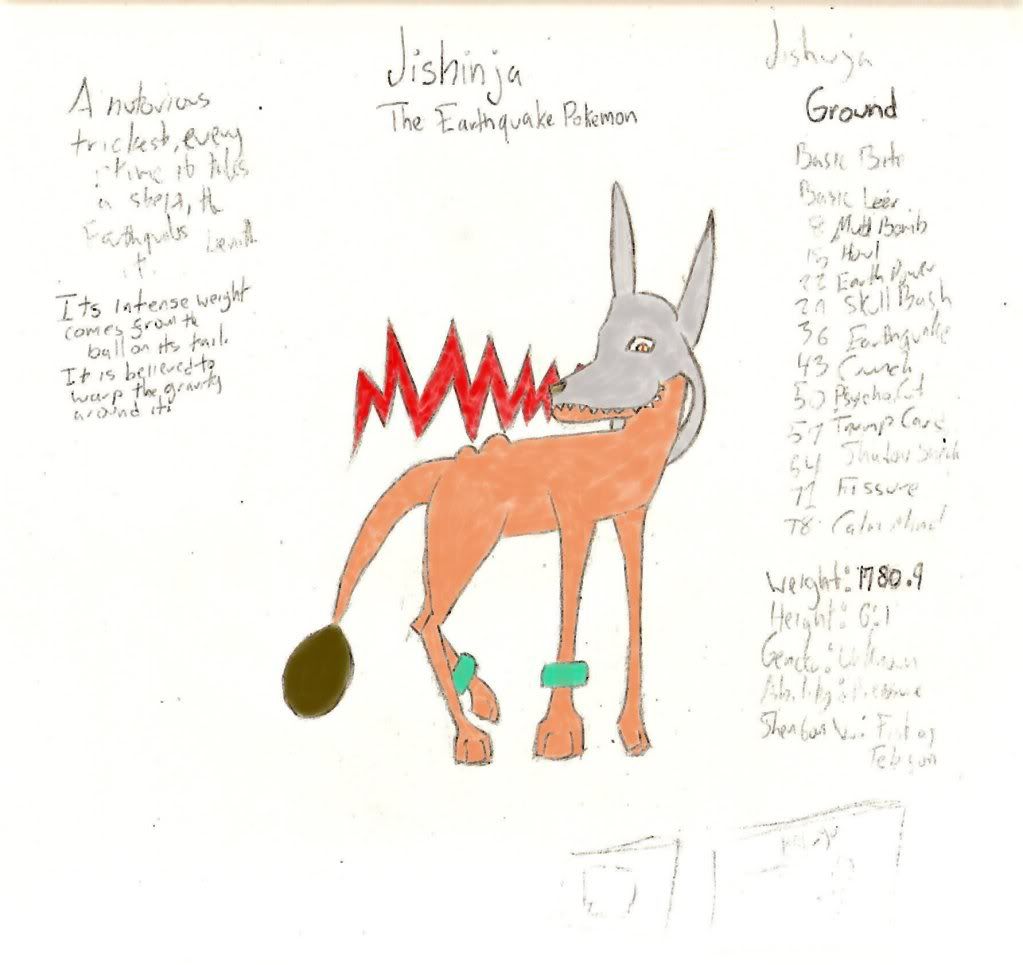 Jishinja
The Earthquake Pokemon
A notorious
trickest, every
time it takes
a step, th
Earthquks
it.
Its intense weight
comes from th
ball on its tail.
It is believed to
warp the gravity
around it.
Jishinja
Ground
Basic Bite
Basic Leer
8 Mud Bomb
15 Howl
22 Earth Power
29 Skull Bash
36 Earthquake
43 Crunch
50 Psycho Cut
57 Trump Card
64
71 Fissure
78 Calm Mind
Weight: 1780.9
Height: 6:1
Gender: Unknown
Ability: Pressure